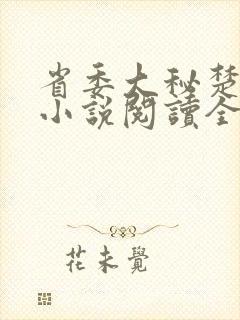 省委大秘楚
小説閱讀全
花未覺